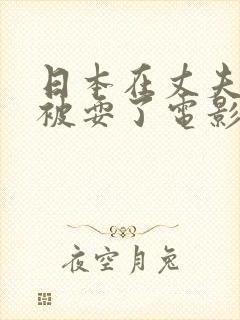 日本在丈夫
被耍了电影
夜空月兔